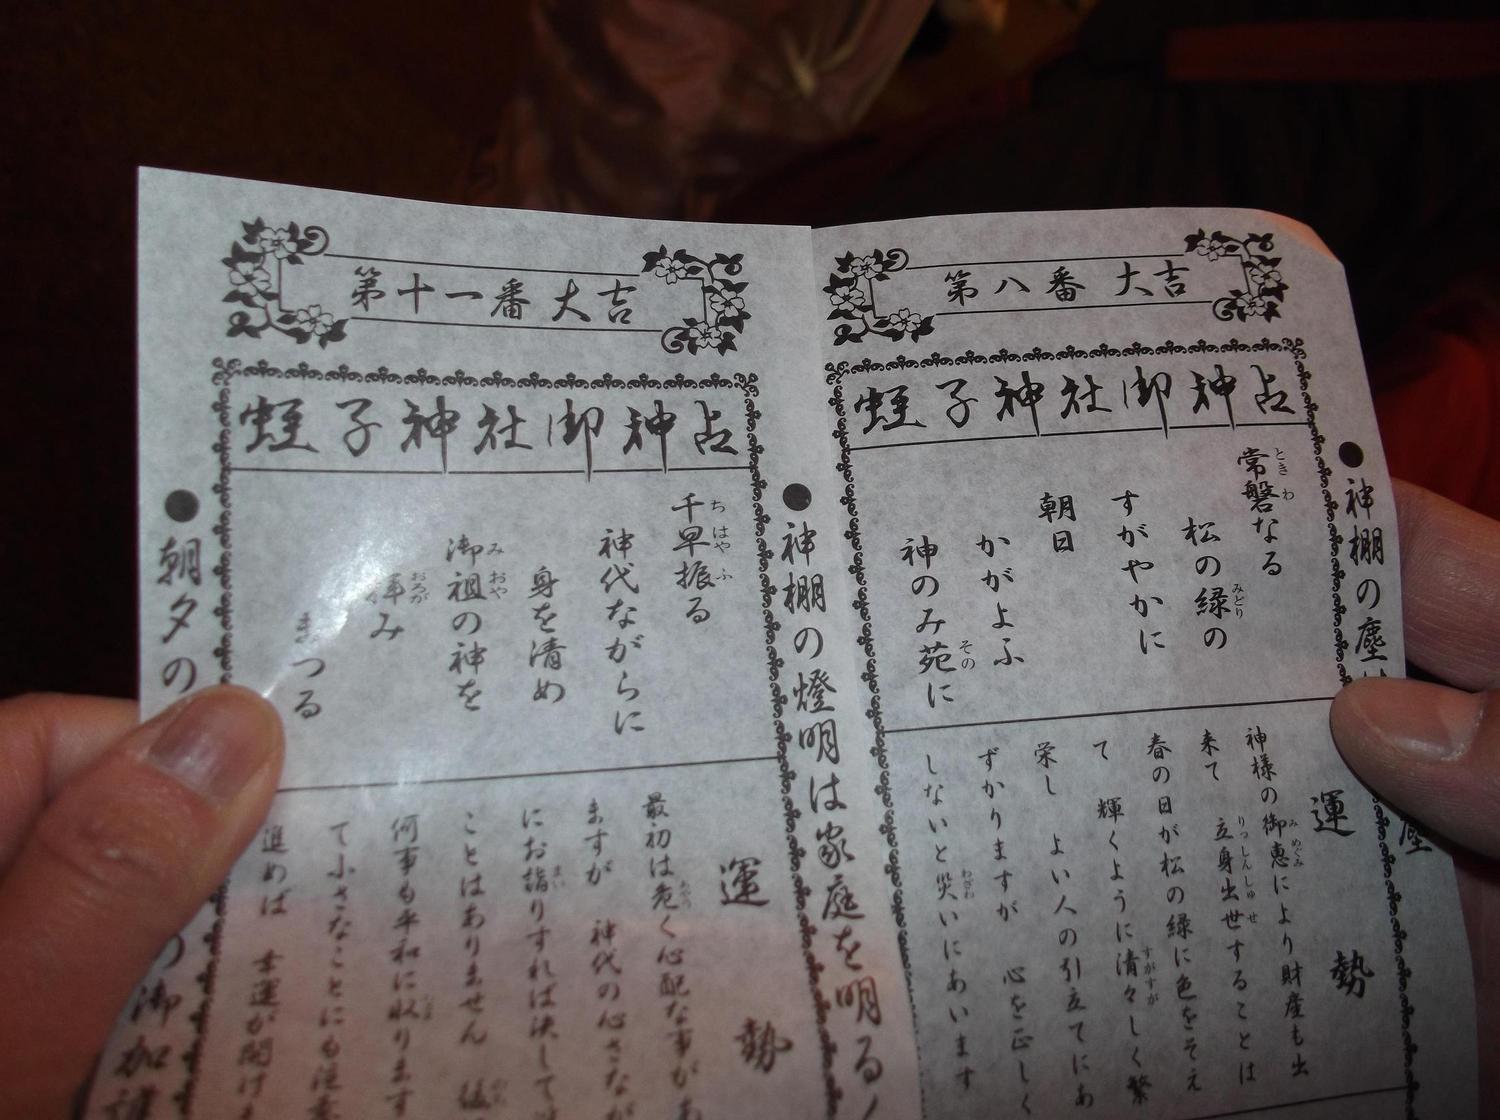 第八番 大吉
蛭子神社御神占
常磐なる
ときわ
松の緑の
みどり
すがやかに
朝日
かがよふ
神のみ苑に
その
運勢
神様の御恵により財産も出
みめぐみ
来て 立身出世することは
りっしんしゅせ
春の日が松の緑に色をそえ
て 輝くように清々しく繁
すがすが
栄し よい人の引立てにあ
ずかりますが 心を正しく
しないと災いにあいます
わざわ
●神棚の塵
塵
第十一番 大吉
蛭子神社御神占
千早振る
ちはやふ
神代ながらに
身を清め
御祖の神を
みおや
拝み
おろが
まつる
運勢
最初は危く心配な事があ
ますが 神代の心さなが
にお詣りすれば決して
まい
ことはありません
何事も平和に収ります
て小さなことにも注意
進めば 幸運が開け
●神棚の燈明は家庭を明る
●朝夕の
の御加護